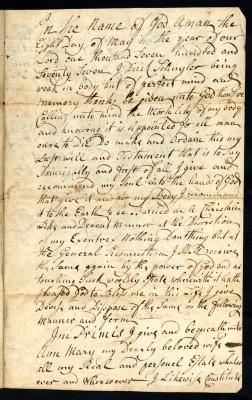 In the Name of God Aman the
Eight Day of May in the year of our
Lord one thousand Seven hundred and
Seventy Seven I Schuyler being
weak in body but of perfect mind and
memory thanks be given unto God therefore
Calling unto mind the Mortality of my body
and knowing it is appointed for all man
once to Die Do make and Ordane this my
Last will and Testament that is to Say
Principally and first of all I give and
recommend my Soul into the hands of God
that give it and for my Body I recommend
it to the Earth to be Burried in a Christain
Like and Decent Manner at the Discretion
of my Exectors Nothing Doubting but at
the General Resurrection I Shall receive
the Same again by the power of God and as
touching Such worldly Estate wherewith it hath
pleased God to Bless me in this Life I give
Devise and Dispose of the Same in the following
Manner and form
Imprimis I give and bequeath unto
Ann Mary my Dearly beloved wife
all my Real and personel Estate whatso
ever and Wheresoever I Likewise Constitute